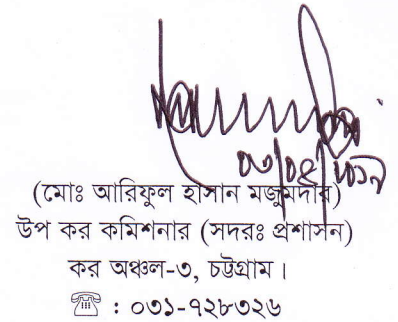 (মোঃ আরিফুল হাসান মজুমদার)
উপ কর কমিশনার (সদরঃ প্রশাসন)
কর অঞ্চল-৩, চট্টগ্রাম।
☎ : ০৩১-৭২৮৩২৬